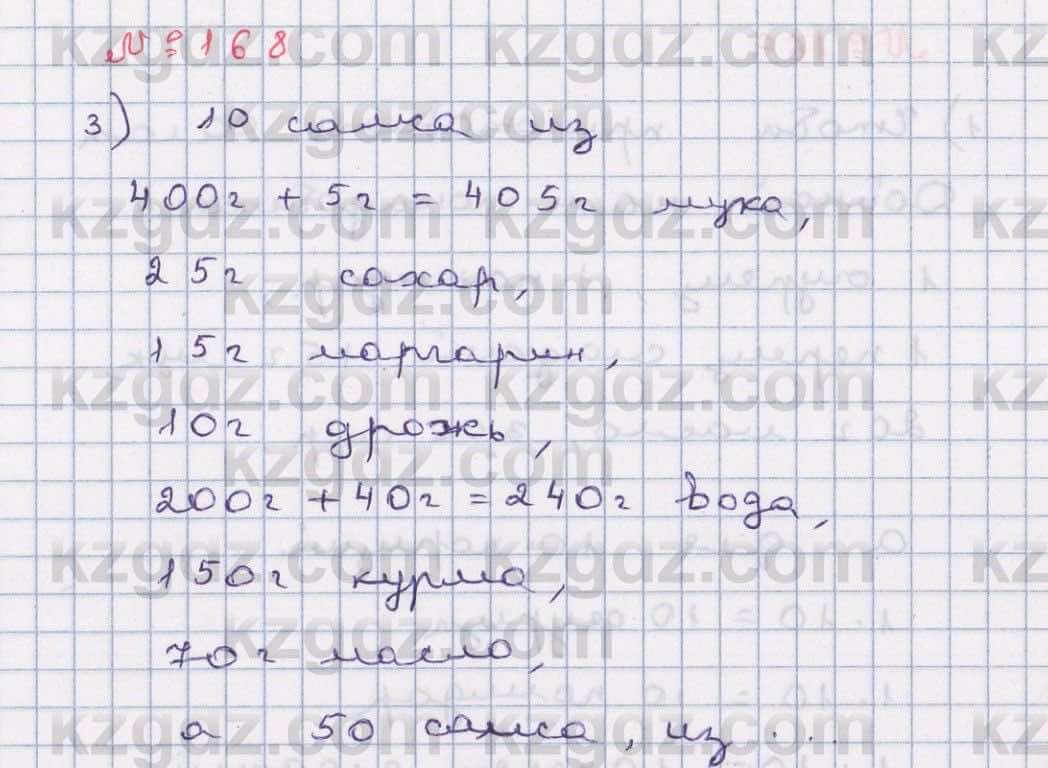 №168
3) 10 самса из
400г + 5г = 405г мука,
25г сахар,
15г маргарин,
10г дрожь,
200г + 40г = 240г вода,
150г курма,
70г масло,
а 50 самса, из ...
kzgdz.com